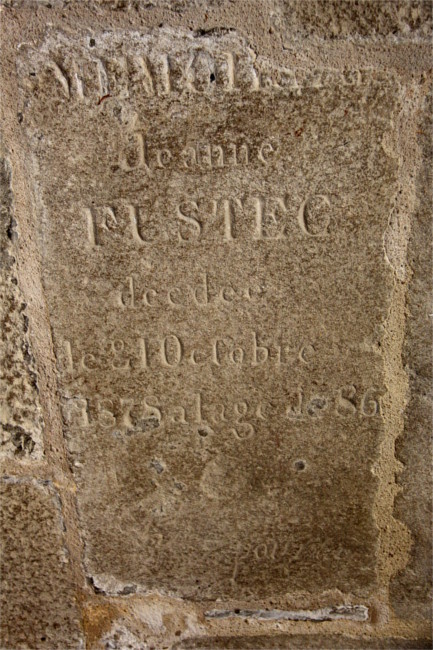 Jeanne
FUSTEC
décédée
le 21 Octobre
1878 a lage de 86
pour